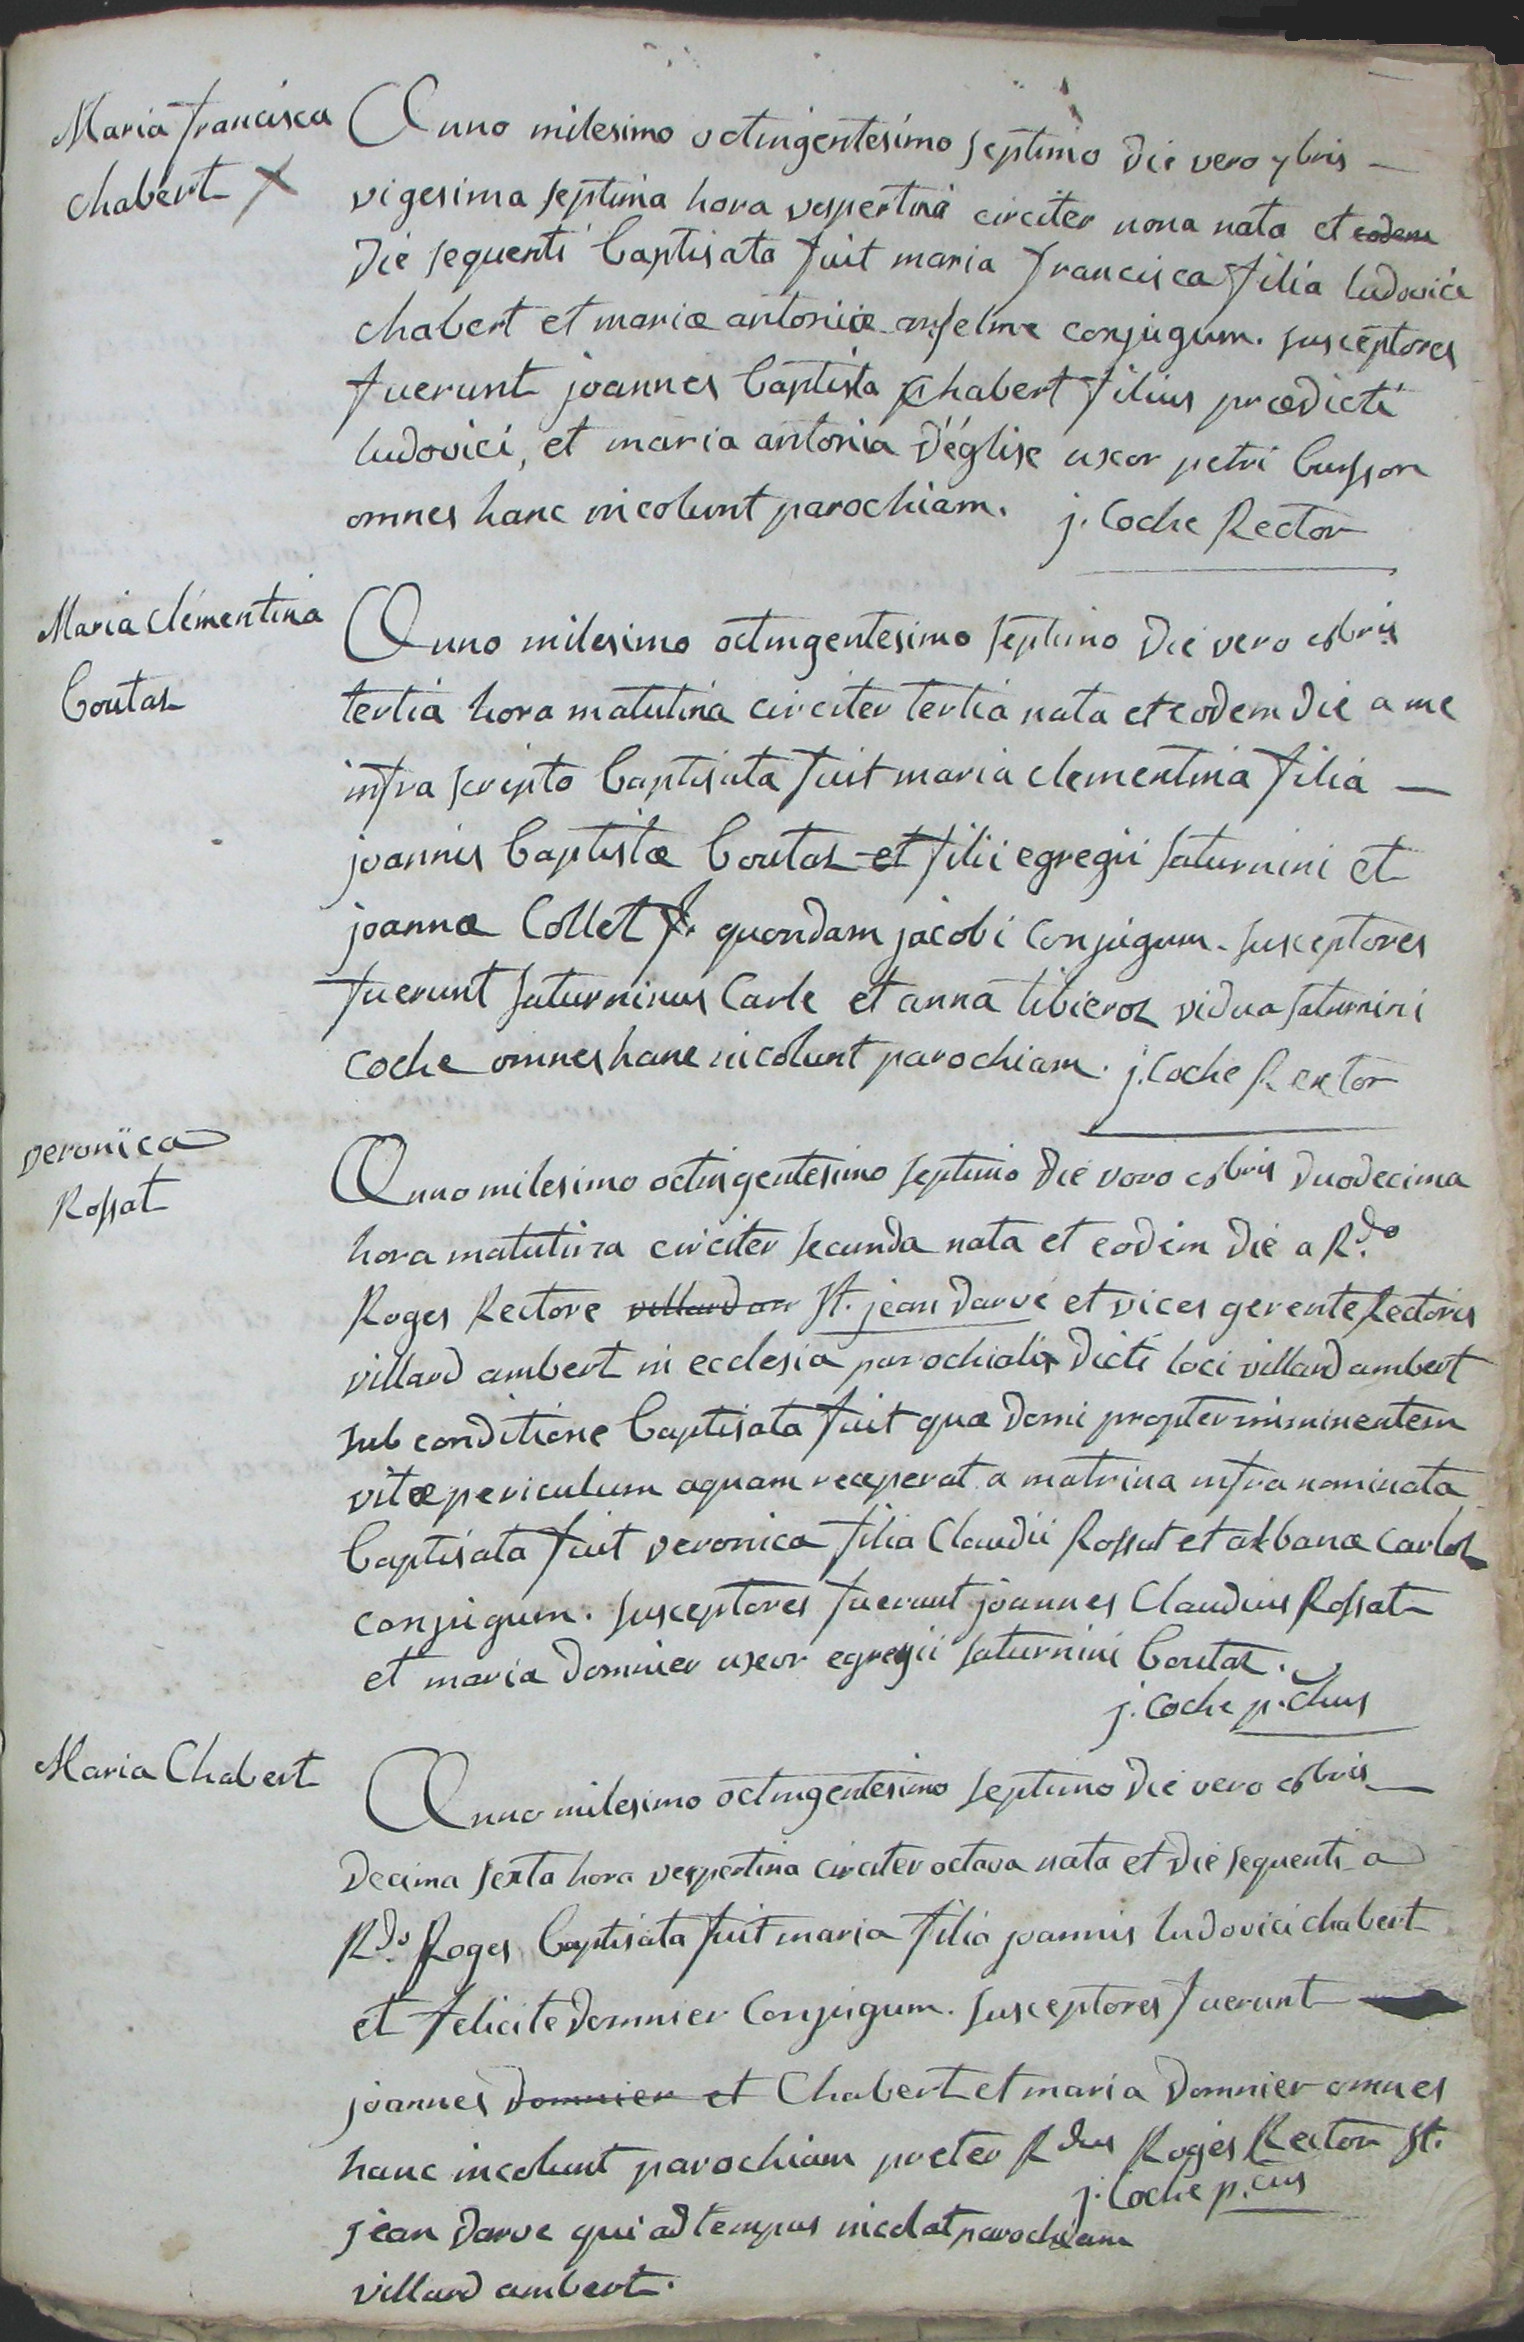 Maria francisca
chabert X
Anno milesimo octingentesimo septimo die vero 7bris —
vigesima septima hora vespertina circiter nona nata et eodem
die sequenti baptisata fuit maria francisca filia ludovici
chabert et mariæ antoniæ anselme conjugum. susceptores
fuerunt joannes baptista chabert filius prædicti
ludovici, et maria antonia d'église uxor petri busson
omnes hanc incolunt parochiam. j. Coche Rector
Maria clémentina
boutaz
Anno milesimo octingentesimo septimo die vero 8bris
tertia hora matutina circiter tertia nata et eodem die a me
infra scripto baptisata fuit maria clementina filia —
joannis baptistæ boutaz et filii egregii saturnini et
joannæ Collet f. quondam jacobi conjugum. susceptores
fuerunt saturninus Carle et anna tibieroz vidua saturnini
coche omnes hanc incolunt parochiam. j. Coche Rector
veronïca
Rossat
Anno milesimo octingentesimo septimo die vero 8bris duodecima
hora matutina circiter secunda nata et eodem die a Rdo
Roges Rectore villard am st. jean darve et vices gerente Rectoris
villard ambert in ecclesia parochialis dicti loci villard ambert
sub conditione baptisata fuit quæ domi propter imminentem
vitæ periculum aquam receperat a matrina infra nominata
baptisata fuit veronica filia Claudii Rossat et albanæ Carloz
conjugum. susceptores fuerunt joannes Claudius Rossat
et maria domnier uxor egregii saturnini boutaz.
j. Coche p.chus
Maria Chabert
Anno milesimo octingentesimo septimo die vero 8bris —
decima sexta hora vespertina circiter octava nata et die sequenti a
Rdo Roges baptisata fuit maria filia joannis ludovici chabert
et felicite domnier conjugum. susceptores fuerunt
joannes domnier et Chabert et maria domnier omnes
hanc incolunt parochiam preter Rdus Roges Rector st.
j. Coche p.cus
jean darve qui ad tempus incolat parochiam
villard ambert.